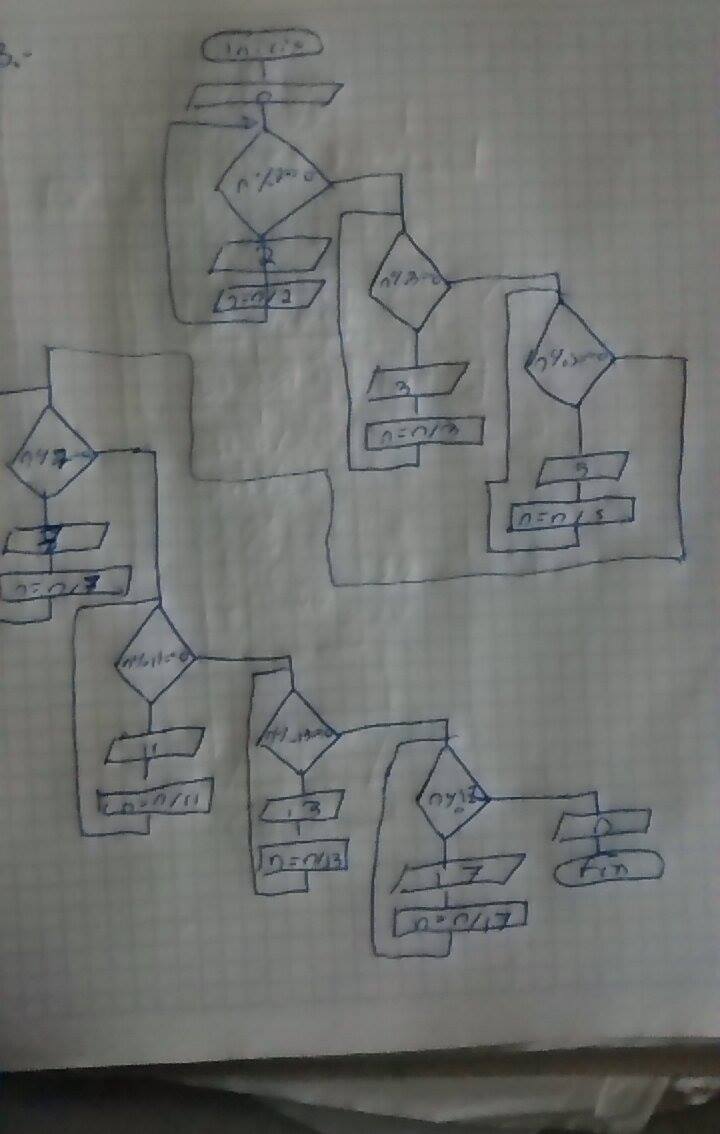 3.-
Inicio
n
n%2==0
2
n=n/2
n%3==0
3
n=n/3
n%5==0
5
n=n/5
n%7==0
7
n=n/7
n%11==0
11
n=n/11
n%13==0
13
n=n/13
n%17
0
17
n=n/17
n
Fin